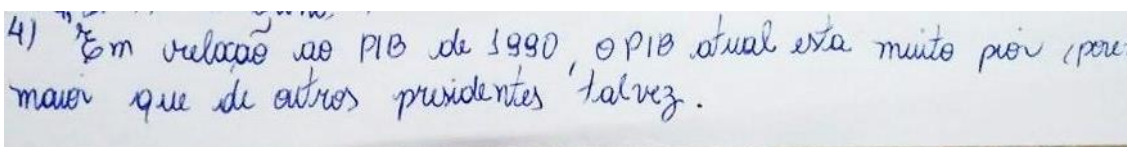 4) Em relação ao PIB de 1990, o PIB atual esta muito pior (pore
maior que de outros presidentes talvez.